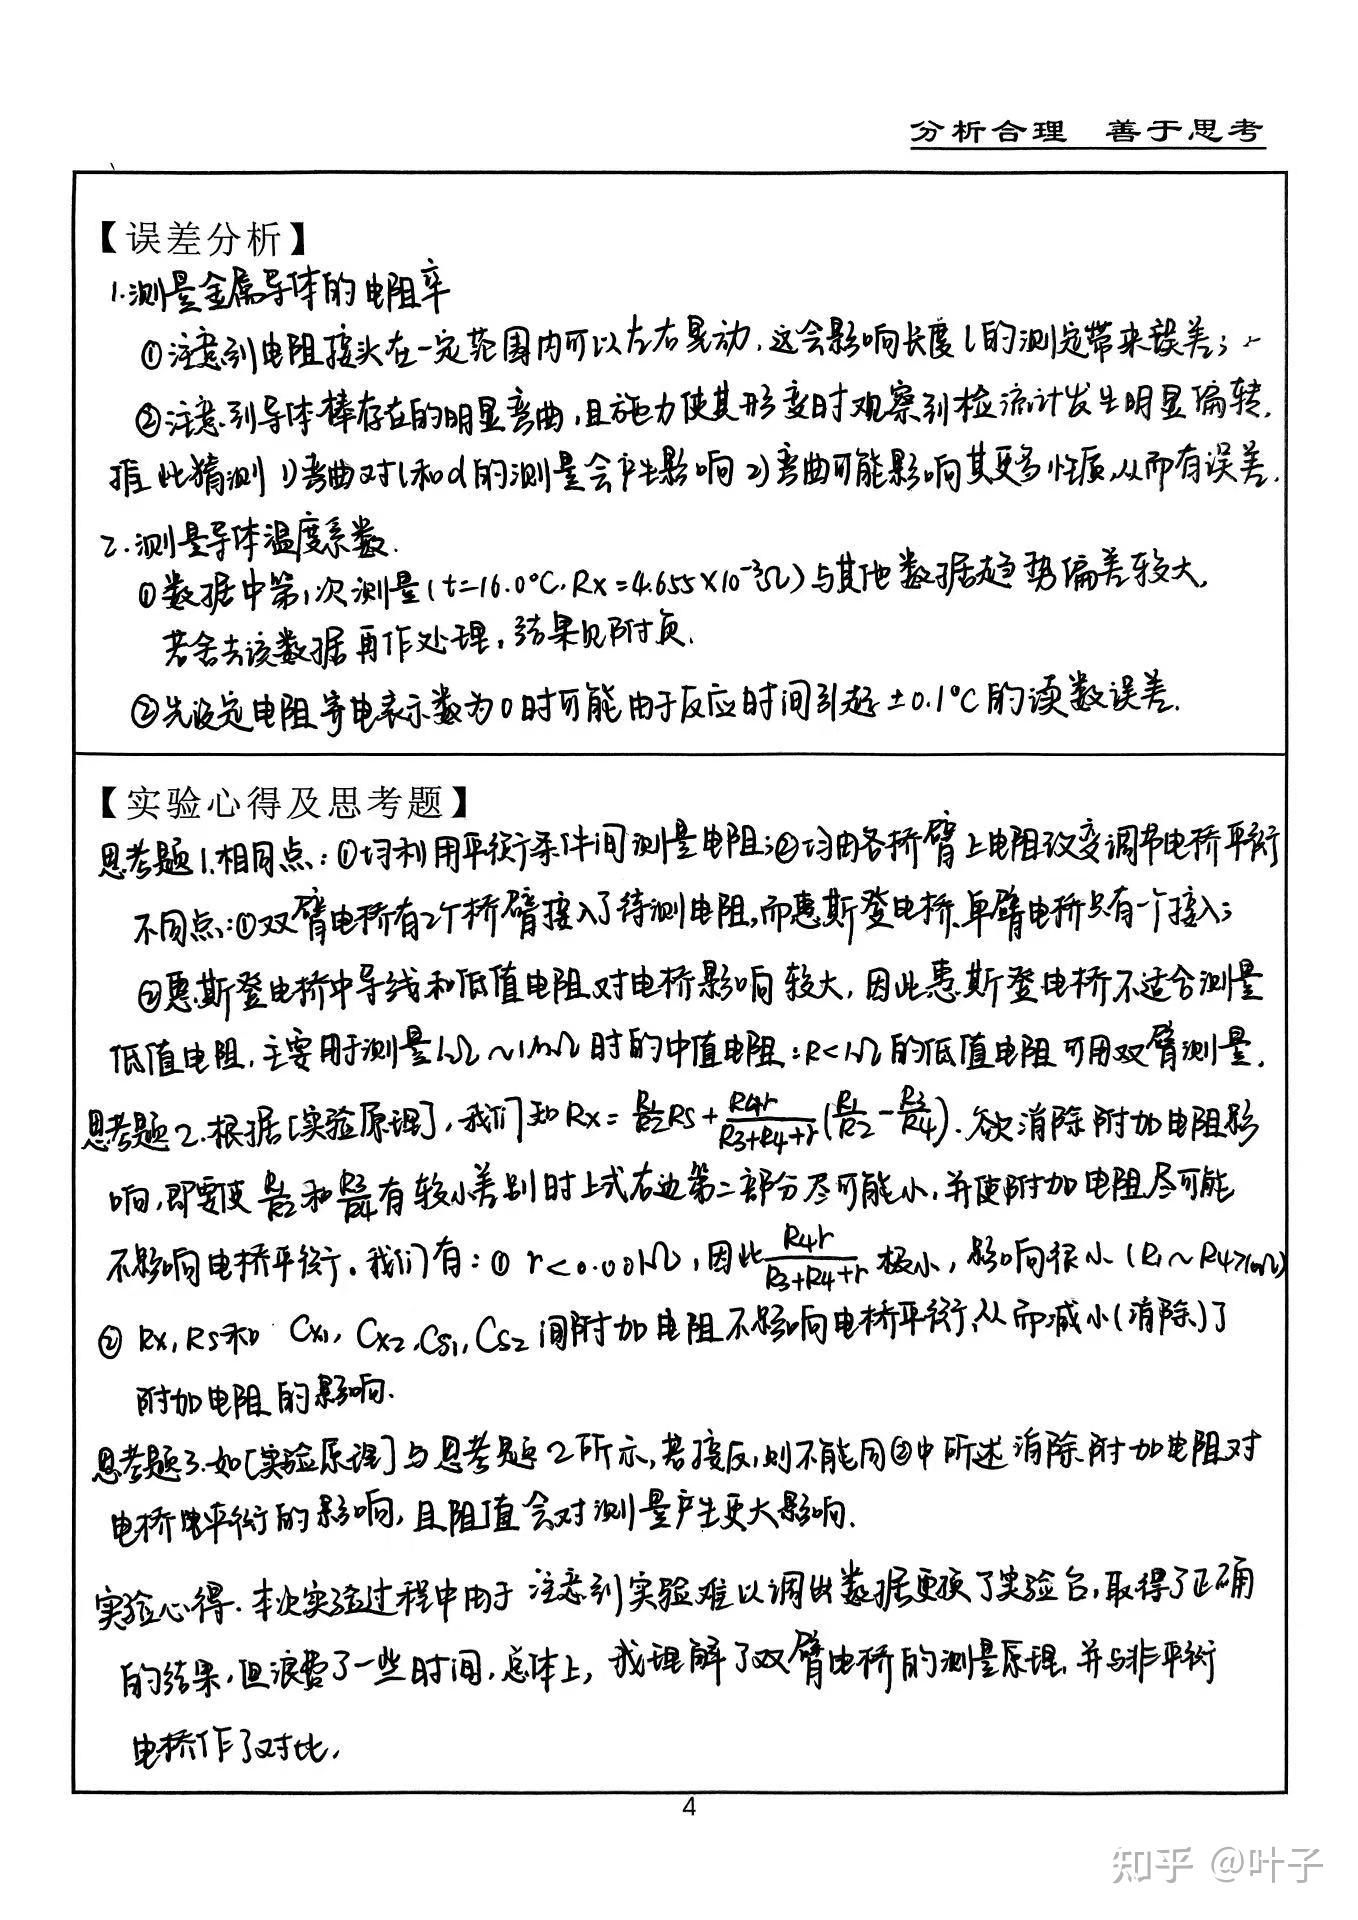 分析合理 善于思考
【误差分析】
1.测量金属导体的电阻率
①注意到电阻接头在一定范围内可以左右晃动,这会影响长度l的测定带来误差;
②注意到导体棒存在的明显弯曲,且施力使其形变时观察到检流计发生明显偏转.
据此猜测 1)弯曲对l和d的测量会产生影响 2)弯曲可能影响其更多性质,从而有误差.
2.测量导体温度系数.
①数据中第1次测量(t=16.0°C.Rx=4.655×10⁻³Ω)与其他数据趋势偏差较大.
若舍去该数据再作处理,结果见附页.
②先设定电阻等电表示数为0时可能由于反应时间引起±0.1°C的读数误差.
【实验心得及思考题】
思考题1.相同点:①均利用平衡条件间测量电阻;②均由各桥臂上电阻改变调节电桥平衡
不同点:①双臂电桥有2个桥臂接入了待测电阻,而惠斯登电桥、单臂电桥只有一个接入;
②惠斯登电桥中导线和低值电阻对电桥影响较大,因此惠斯登电桥不适合测量
低值电阻,主要用于测量1Ω~1MΩ时的中值电阻:R<1Ω的低值电阻可用双臂测量.
思考题2.根据[实验原理],我们知Rx=R1/R2 Rs+R4r/(R3+R4+r)(R1/R2-R3/R4).欲消除附加电阻影
响,即要使R1/R2和R3/R4有较小差别时上式右边第二部分尽可能小,并使附加电阻尽可能
不影响电桥平衡.我们有:①r<0.001Ω,因此R4r/(R3+R4+r)极小,影响很小(R1~R4>10Ω)
②Rx,Rs和Cx1,Cx2,Cs1,Cs2间附加电阻不影响电桥平衡,从而减小(消除)了
附加电阻的影响.
思考题3.如[实验原理]与思考题2所示,若接反,则不能同②中所述消除附加电阻对
电桥平衡的影响,且阻值会对测量产生更大影响.
实验心得.本次实验过程中由于注意到实验难以调出数据更换了实验台,取得了正确
的结果,但浪费了一些时间,总体上,我理解了双臂电桥的测量原理,并与非平衡
电桥作了对比,
4
知乎 @叶子